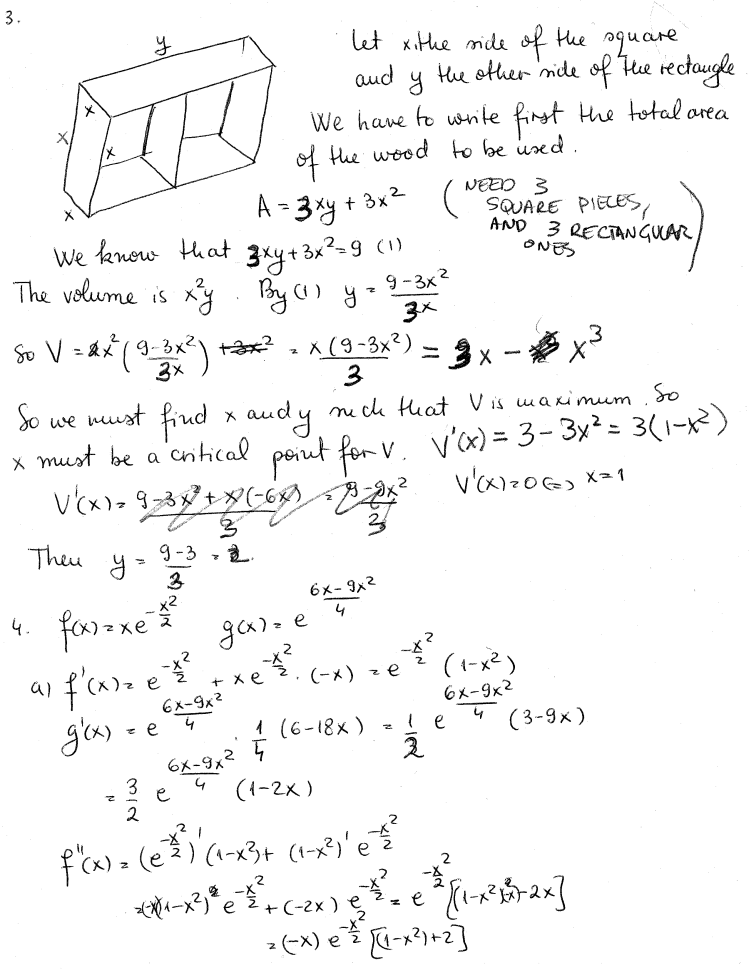 3.
y
x
x
x
x
let x the side of the square
and y the other side of the rectangle
We have to write first the total area
of the wood to be used.
A = 3xy + 3x²
(NEED 3 SQUARE PIECES, AND 3 RECTANGULAR ONES)
We know that 3xy + 3x² = 9 (1)
The volume is x²y. By (1) y = (9-3x²)/(3x)
So V = x² ((9-3x²)/(3x)) = x(9-3x²)/3 = 3x - x³
So we must find x and y such that V is maximum. So
x must be a critical point for V. V'(x) = 3 - 3x² = 3(1-x²)
V'(x) = (9-3x² + x(-6x))/3 = (9-9x²)/3
V'(x) = 0 <=> x = 1
Then y = (9-3)/3 = 2.
4. f(x) = xe^(-x²/2) g(x) = e^((6x-9x²)/4)
a) f'(x) = e^(-x²/2) + xe^(-x²/2) · (-x) = e^(-x²/2) (1-x²)
g'(x) = e^((6x-9x²)/4) · 1/4 (6-18x) = 1/2 e^((6x-9x²)/4) (3-9x)
= 3/2 e^((6x-9x²)/4) (1-2x)
f''(x) = (e^(-x²/2))' (1-x²) + (1-x²)' e^(-x²/2)
= (-x)(1-x²) e^(-x²/2) + (-2x) e^(-x²/2) = e^(-x²/2) [(1-x²)(-x)-2x]
= (-x) e^(-x²/2) [(1-x²)+2]